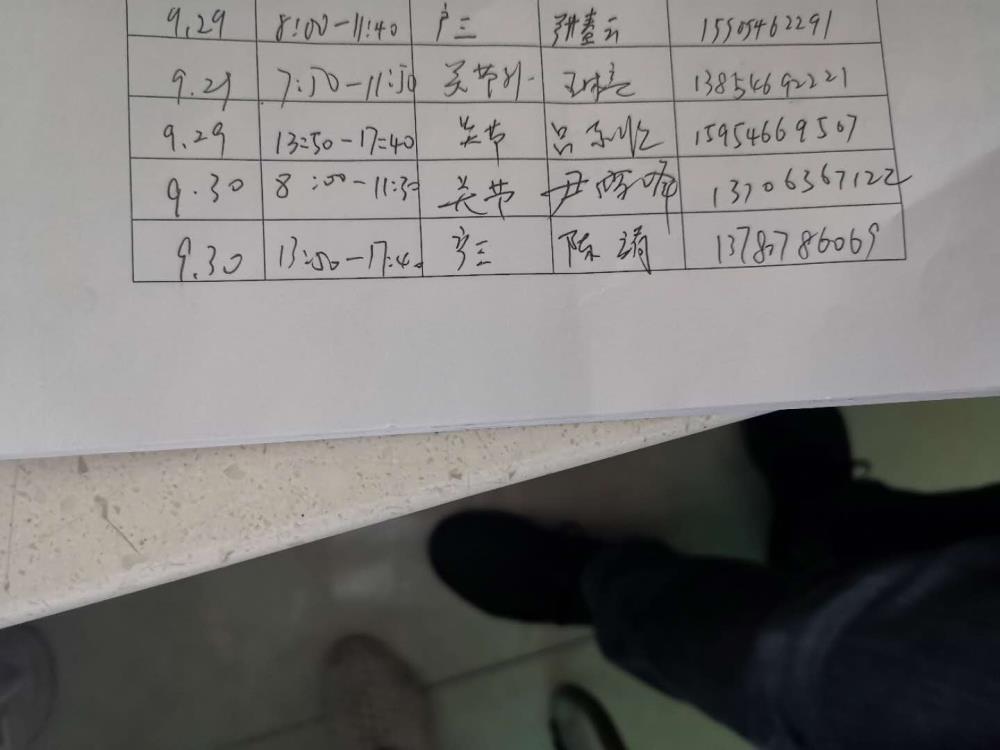 9.29 8:00-11:40 产三 张鑫云 15505462291
9.29 7:50-11:50 关节外 13854692221
9.29 13:50-17:40 关节 吕 15954669507
9.30 8:00-11:30 关节 尹 13706367122
9.30 13:50-17:40 产三 陈 13787786069